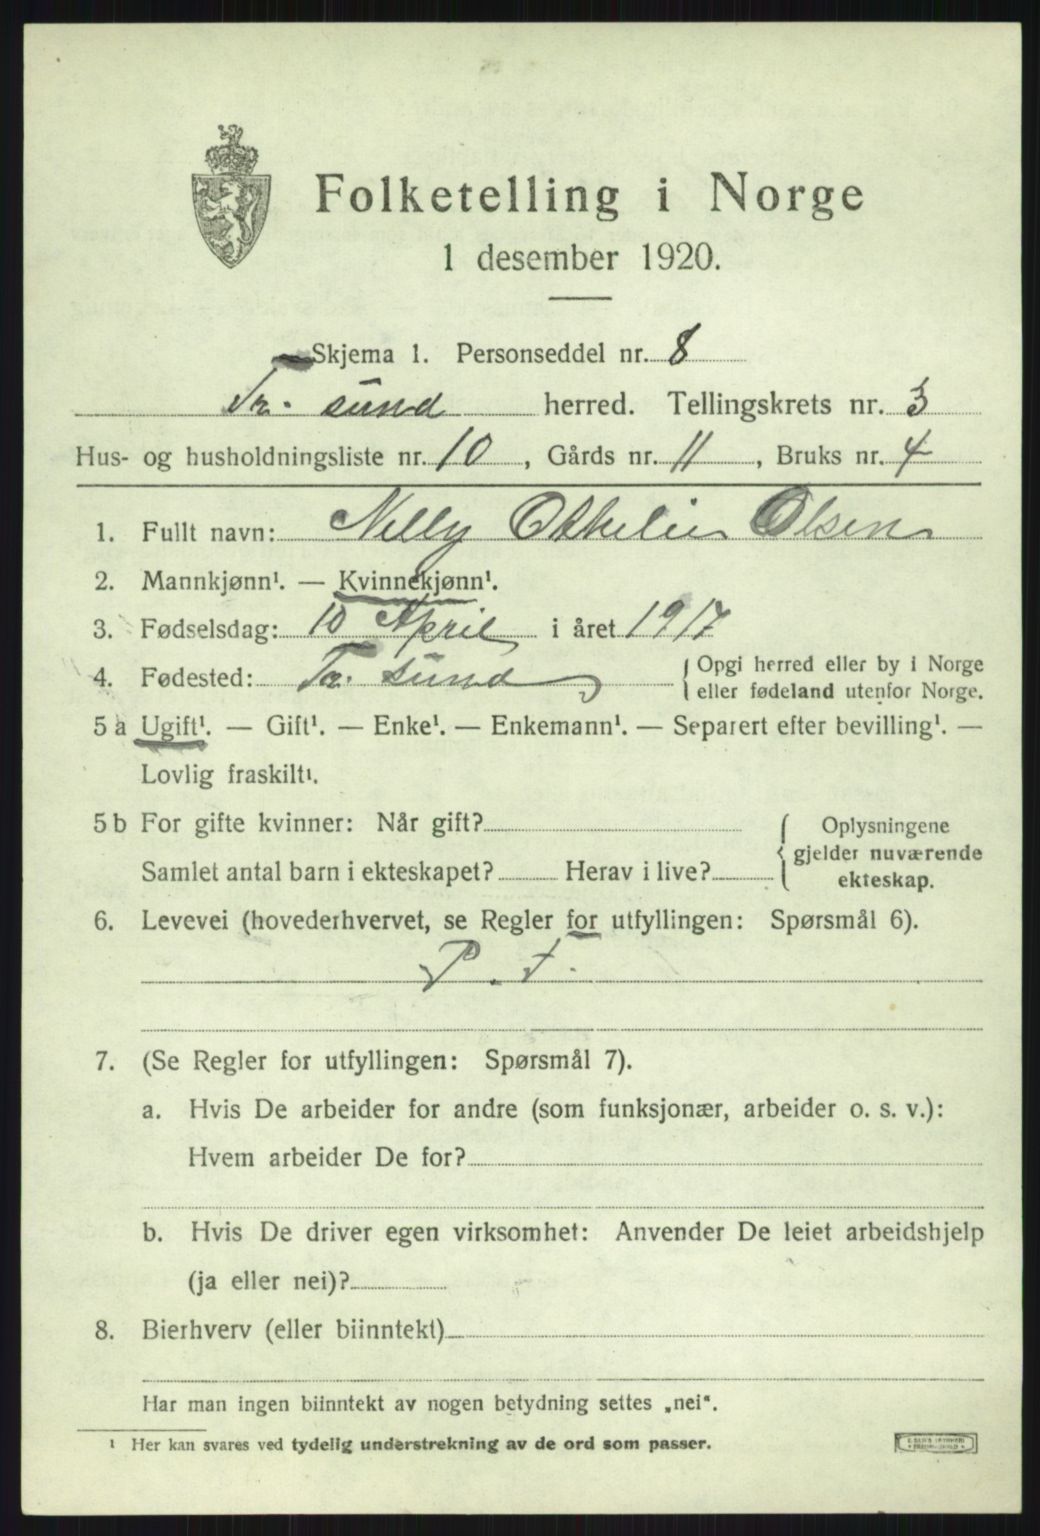 Folketelling i Norge
1 desember 1920.
Skjema 1. Personseddel nr. 8
Tr. sund herred. Tellingskrets nr. 3
Hus- og husholdningsliste nr. 10, Gårds nr. 11, Bruks nr. 4
1. Fullt navn: Nelly Othelie Olsen
2. Mannkjønn¹. — Kvinnekjønn¹.
3. Fødselsdag: 10 April i året 1917
4. Fødested: Tr. sund { Opgi herred eller by i Norge
eller fødeland utenfor Norge.
5 a Ugift¹. — Gift¹. — Enke¹. — Enkemann¹. — Separert efter bevilling¹. —
Lovlig fraskilt¹.
5 b For gifte kvinner: Når gift? { Oplysningene
gjelder nuværende
Samlet antal barn i ekteskapet? Herav i live? ekteskap.
6. Levevei (hovederhvervet, se Regler for utfyllingen: Spørsmål 6).
P. F.
7. (Se Regler for utfyllingen: Spørsmål 7).
a. Hvis De arbeider for andre (som funksjonær, arbeider o. s. v.):
Hvem arbeider De for?
b. Hvis De driver egen virksomhet: Anvender De leiet arbeidshjelp
(ja eller nei)?
8. Bierhverv (eller biinntekt)
Har man ingen biinntekt av nogen betydning settes „nei“.
¹ Her kan svares ved tydelig understrekning av de ord som passer.